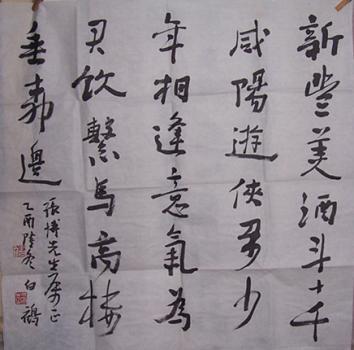 新豐美酒斗十千
咸陽遊俠多少
年相逢意氣為
君飲繫馬高樓
垂柳邊
張博先生属正
乙酉隆冬白